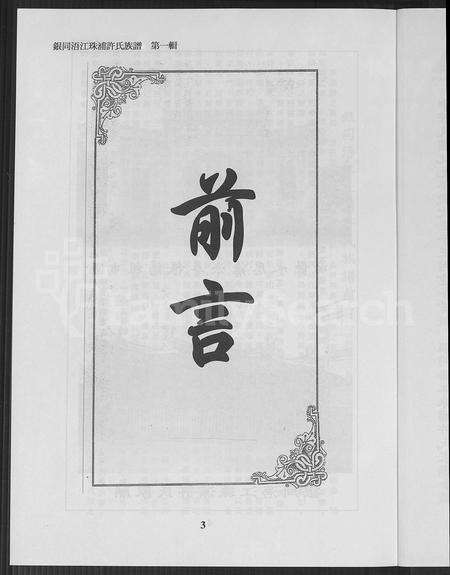 銀同浯江珠浦許氏族譜 第一輯
前言
FamilySearch
3